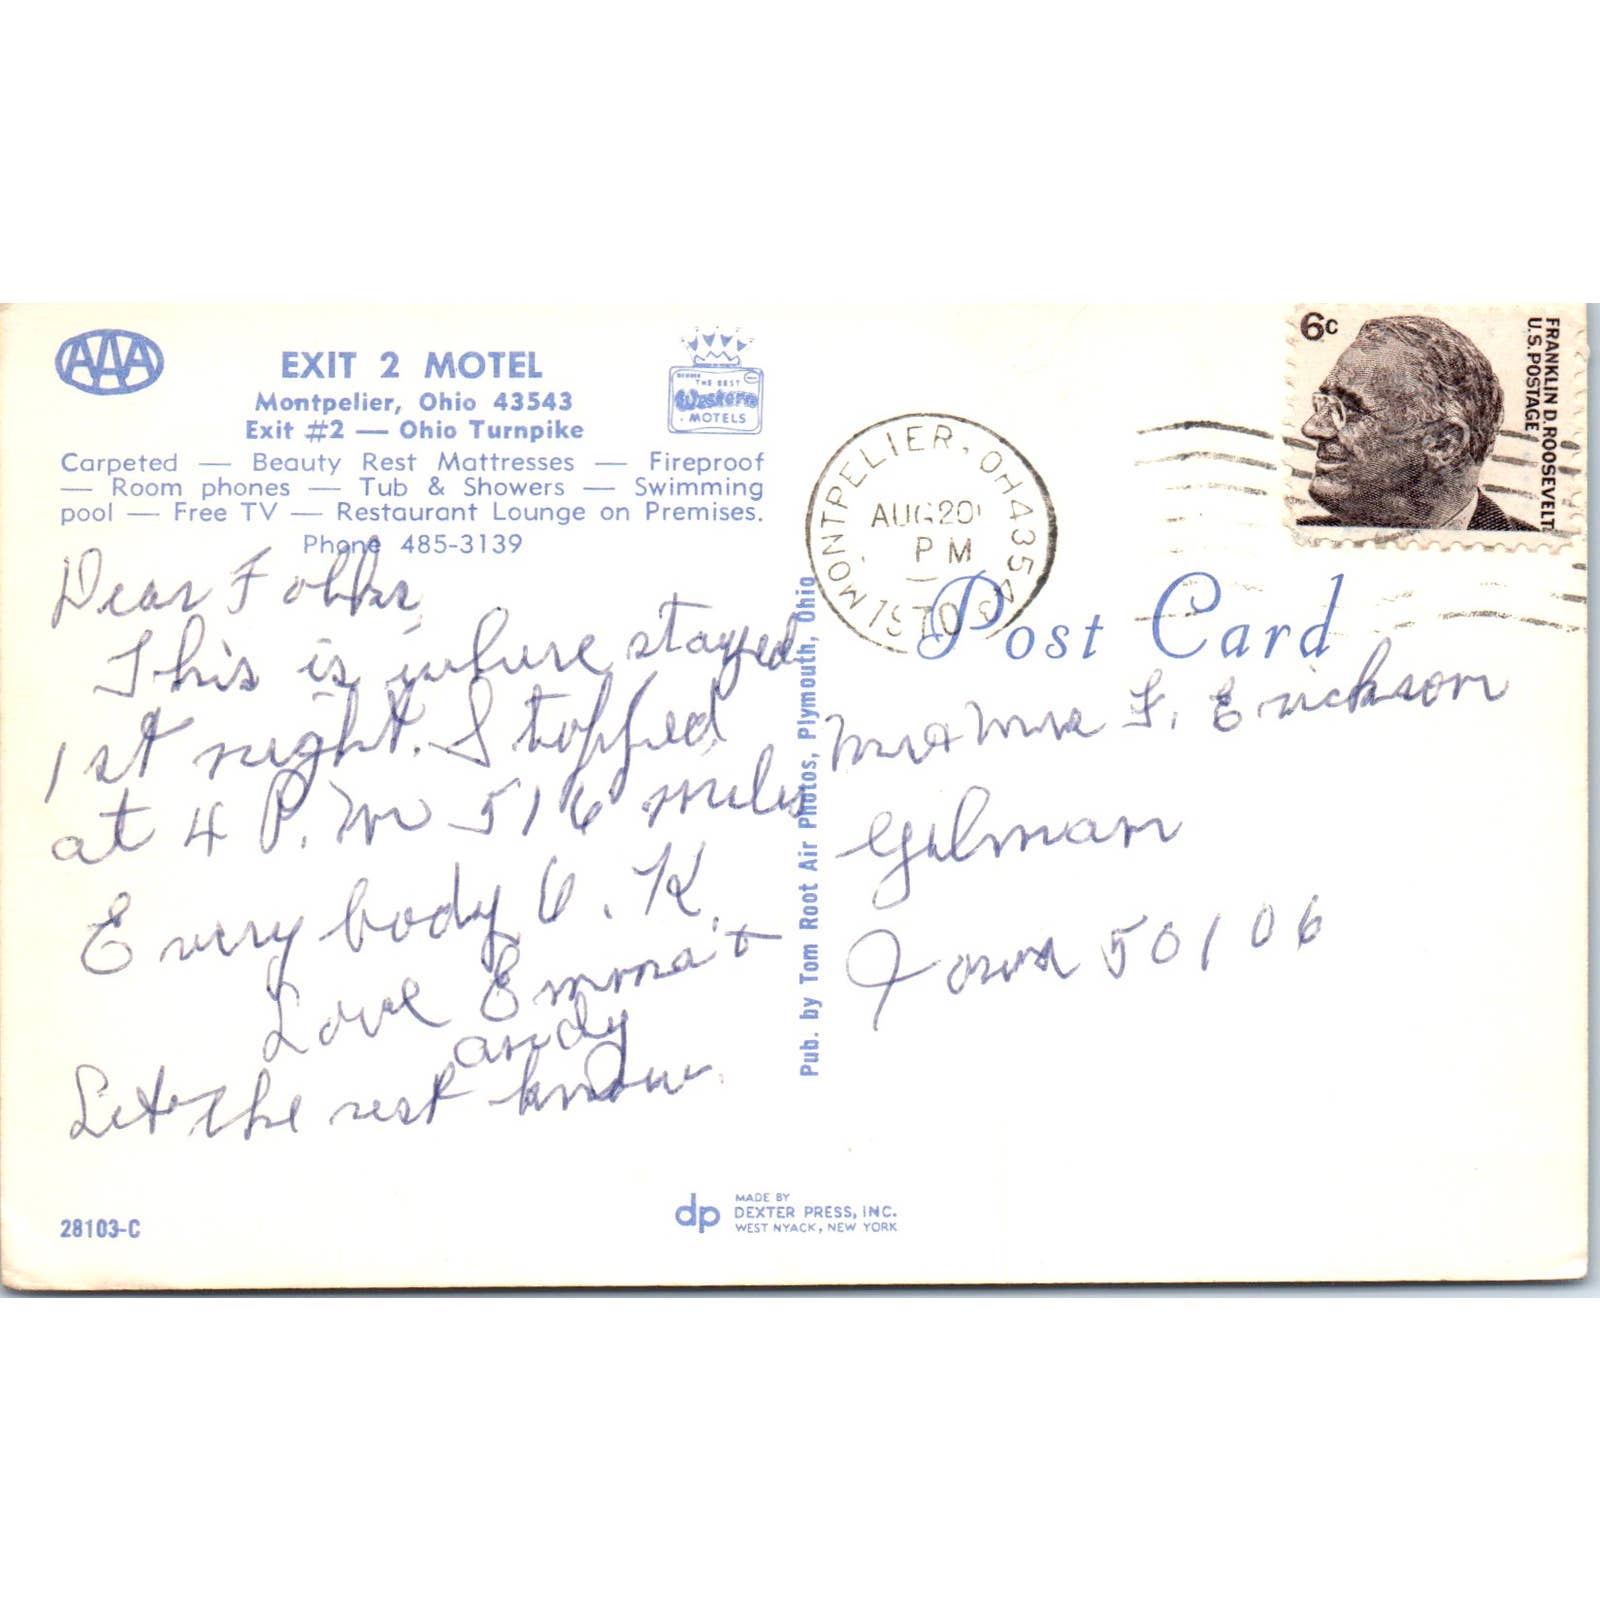 AAA
EXIT 2 MOTEL
Montpelier, Ohio 43543
Exit #2 — Ohio Turnpike
THE BEST
Western
MOTELS
Carpeted — Beauty Rest Mattresses — Fireproof
— Room phones — Tub & Showers — Swimming
pool — Free TV — Restaurant Lounge on Premises.
Phone 485-3139
Dear Folks,
This is where stayed
1st night. Stopped
at 4 P.M 516 miles
Everybody O.K.
Love Emma &
Andy
Let the rest know.
28103-C
dp
MADE BY
DEXTER PRESS, INC.
WEST NYACK, NEW YORK
Pub. by Tom Root Air Photos, Plymouth, Ohio
MONTPELIER, OH 43543
AUG 20
PM
1970
6c
FRANKLIN D. ROOSEVELT
U.S. POSTAGE
Post Card
Mr & Mrs F. Erickson
Gilman
Iowa 50106